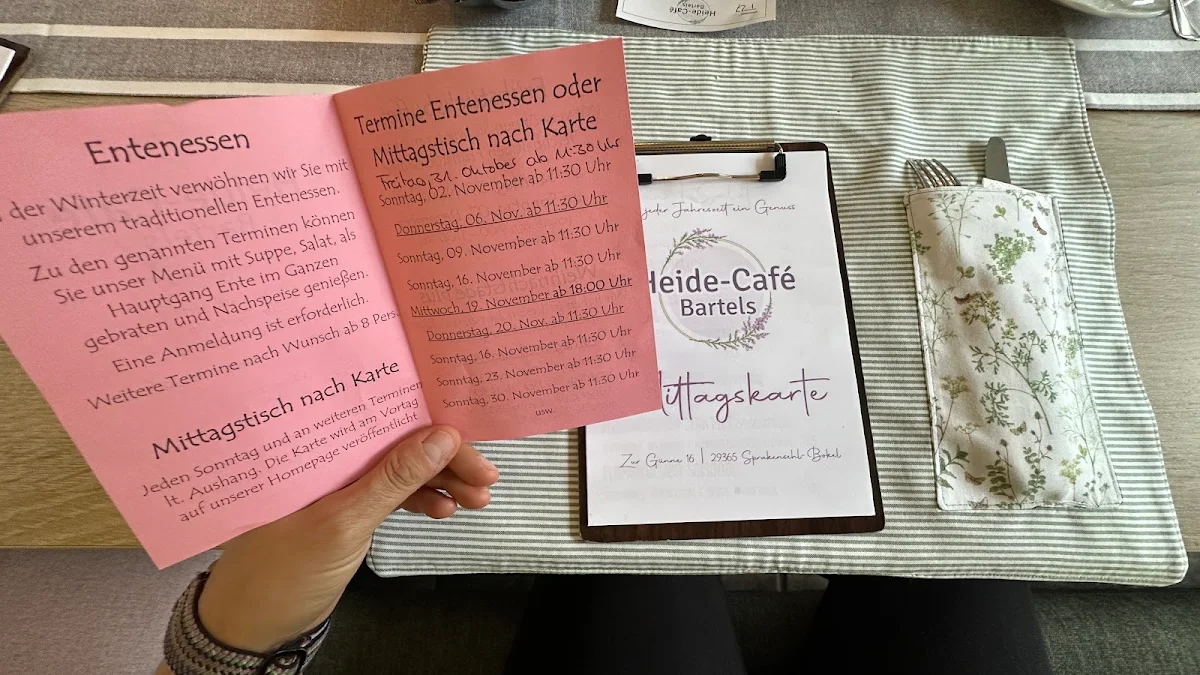 Entenessen
der Winterzeit verwöhnen wir Sie mit
unserem traditionellen Entenessen.
Zu den genannten Terminen können
Sie unser Menü mit Suppe, Salat, als
Hauptgang Ente im Ganzen
gebraten und Nachspeise genießen.
Eine Anmeldung ist erforderlich.
Weitere Termine nach Wunsch ab 8 Pers.
Mittagstisch nach Karte
Jeden Sonntag und an weiteren Terminen
lt. Aushang. Die Karte wird am Vortag
auf unserer Homepage veröffentlicht
Termine Entenessen oder
Mittagstisch nach Karte
Freitag, 31. Oktober ab 11:30 Uhr
Sonntag, 02. November ab 11:30 Uhr
Donnerstag, 06. Nov. ab 11:30 Uhr
Sonntag, 09. November ab 11:30 Uhr
Sonntag, 16. November ab 11:30 Uhr
Mittwoch, 19. November ab 18:00 Uhr
Donnerstag, 20. Nov. ab 11:30 Uhr
Sonntag, 16. November ab 11:30 Uhr
Sonntag, 23. November ab 11:30 Uhr
Sonntag, 30. November ab 11:30 Uhr
usw.
jeder Jahreszeit ein Genuss
Heide-Café
Bartels
Mittagskarte
Zur Günne 16 | 29365 Sprakensehl-Bokel
Heide-Café
Bartels